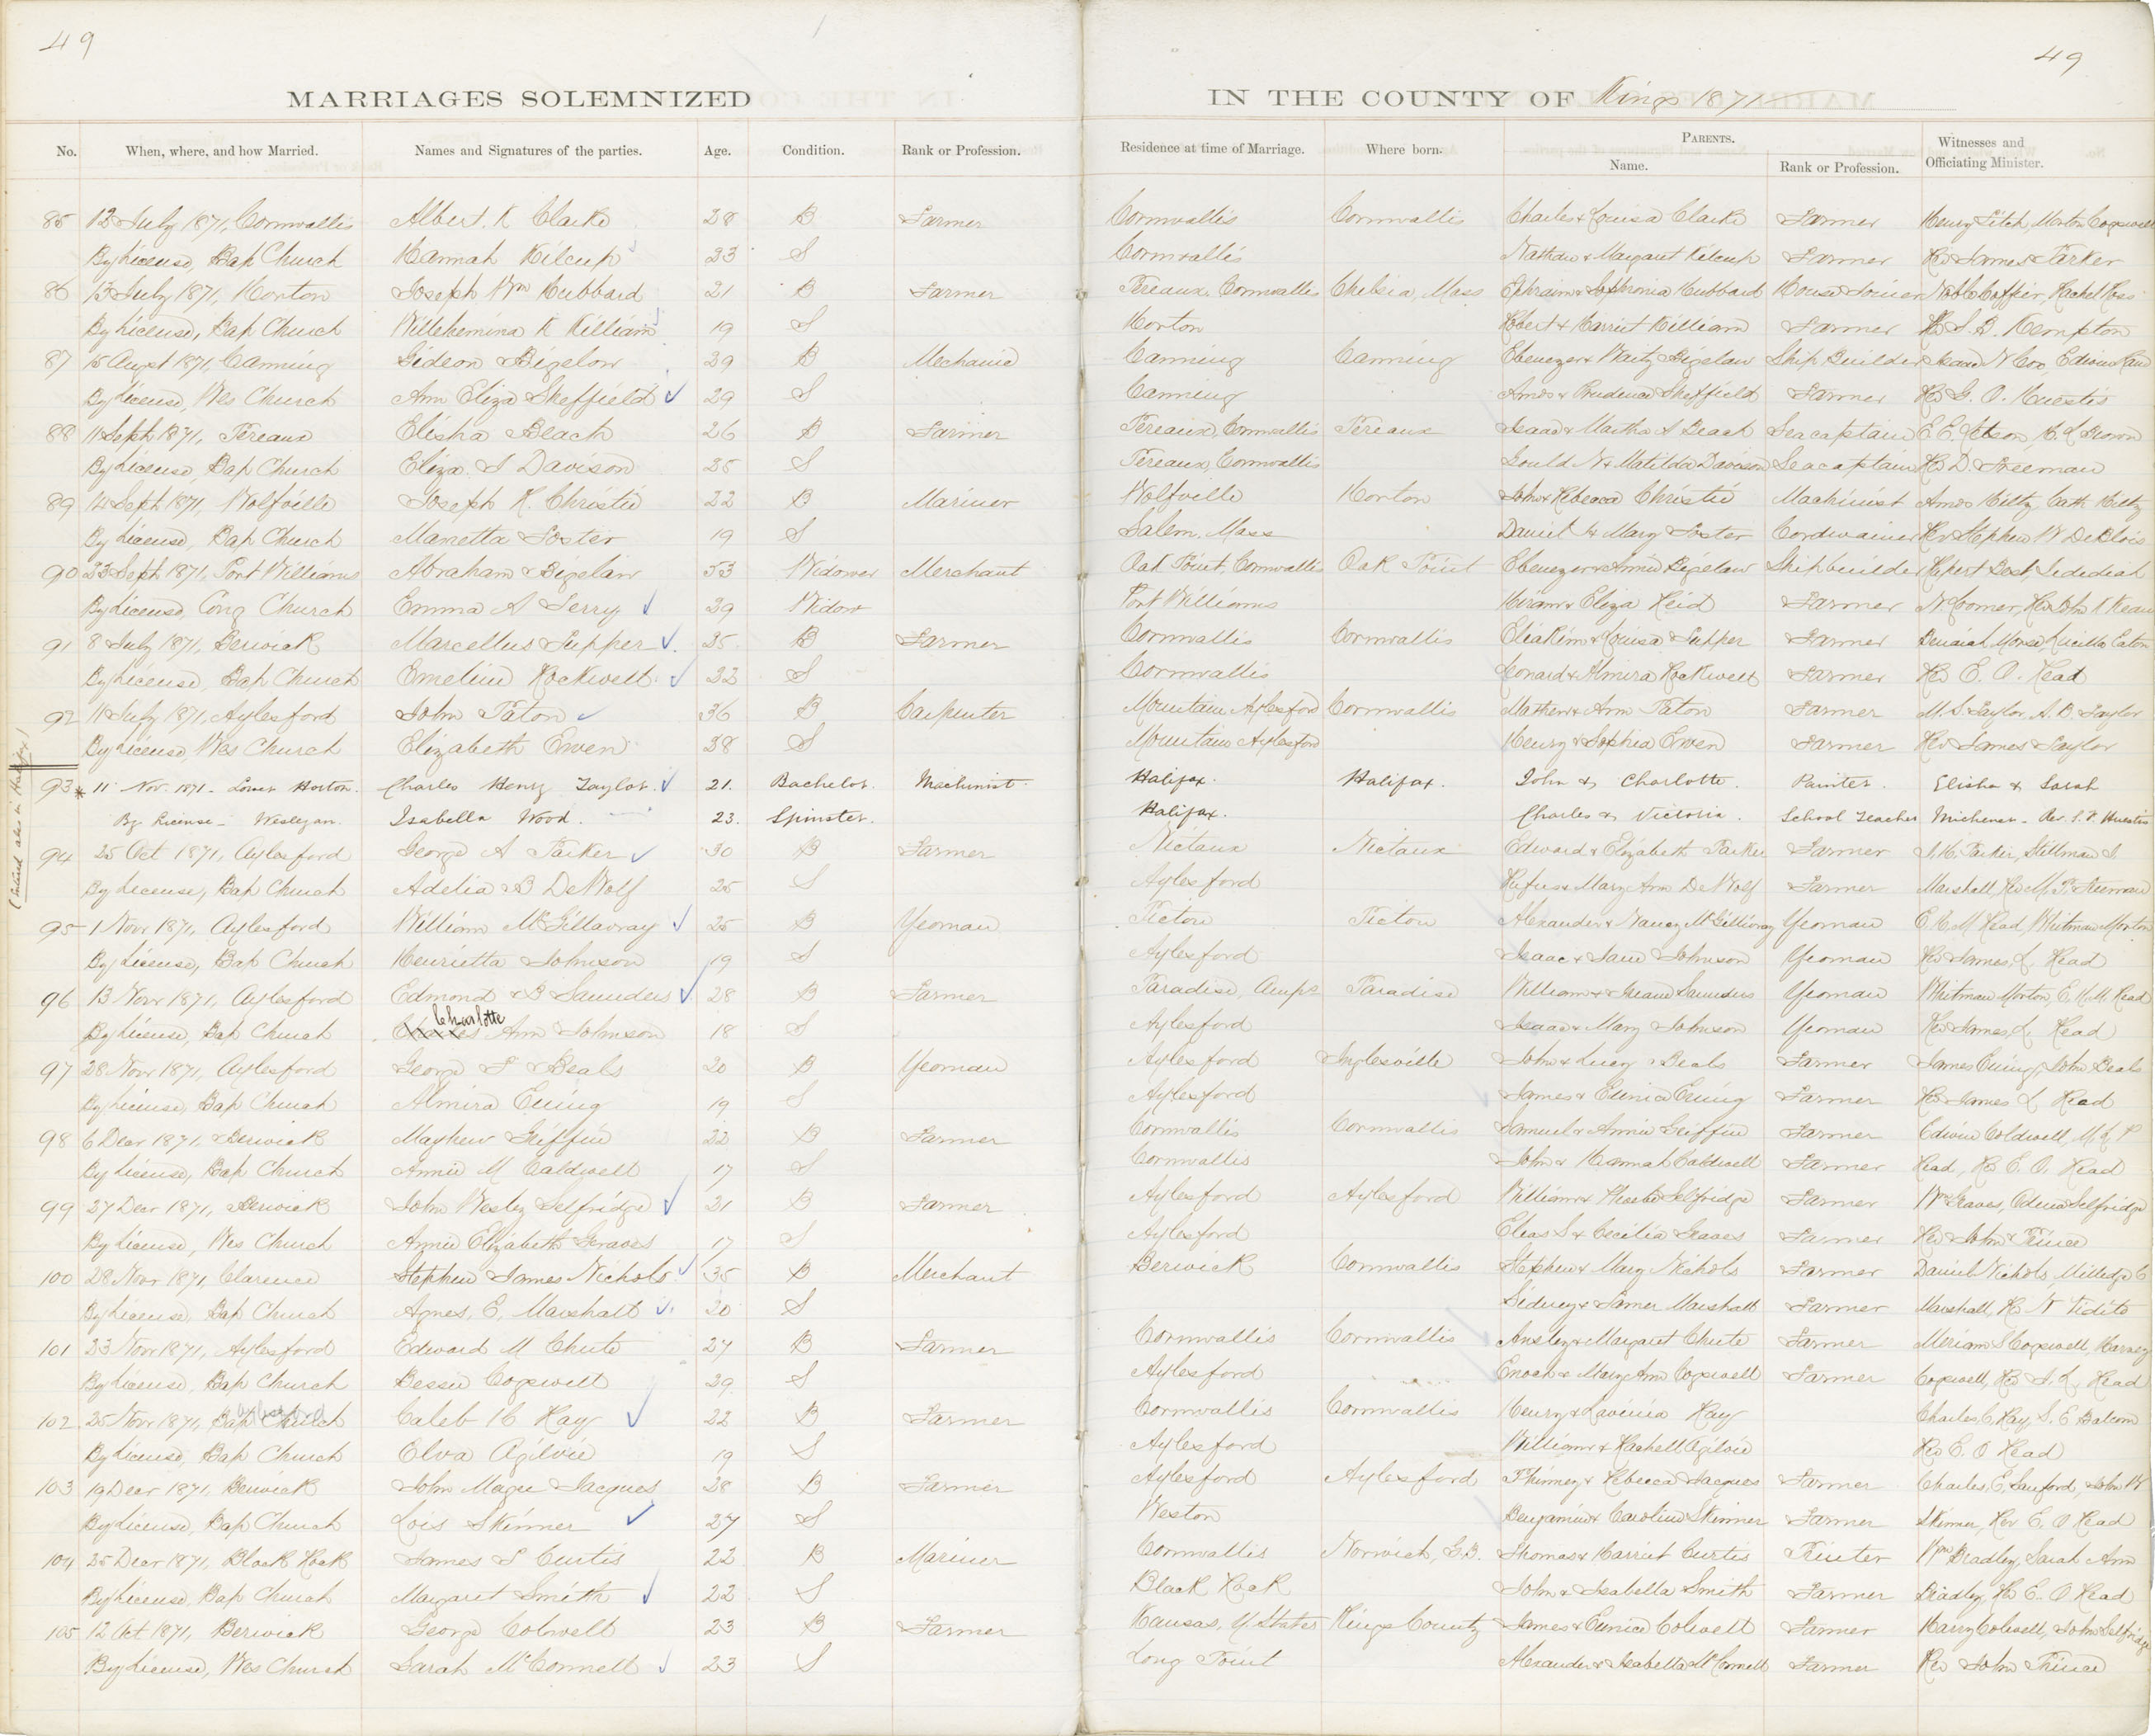 49
49
MARRIAGES SOLEMNIZED IN THE COUNTY OF Kings 1871
No. When, where, and how Married. Names and Signatures of the parties. Age. Condition. Rank or Profession. Residence at time of Marriage. Where born. PARENTS. Name. Rank or Profession. Witnesses and Officiating Minister.
85 13 July 1871, Cornwallis Albert. R Clarke 28 B Farmer Cornwallis Cornwallis Charles & Louisa Clarke Farmer Henry Fitch, Morton Cogswell
By License, Bap Church Hannah Kilcup 23 S Cornwallis Nathan & Margaret Kilcup Farmer Rev James Parker
86 13 July 1871, Horton Joseph Wm Hubbard 21 B Farmer Pereaux, Cornwallis Chelsea, Mass Ephraim & Sophronia Hubbard House Joiner Noble Coffier, Rachel Ross
By License, Bap Church Willehemina R Killiam 19 S Horton Robert & Harriet Killiam Farmer Rev S. B. Kempton
87 15 Augst 1871, Canning Gideon Bigelow 29 B Mechanic Canning Canning Ebenezer & Waity Bigelow Ship Builder Isaac N Cox, Edwin Rand
By License, Wes Church Ann Eliza Sheffield 29 S Canning Amos & Prudence Sheffield Farmer Rev G. O. Huestis
88 11 Sept 1871, Pereaux Elisha Beach 26 B Farmer Pereaux, Cornwallis Pereaux Isaac & Martha A Beach Seacaptain E E. Jetson, C. L Brown
By License, Bap Church Eliza. S Davison 25 S Pereaux, Cornwallis Gould N & Matilda Davison Seacaptain Rev D. Freeman
89 14 Sept 1871, Wolfville Joseph R. Christie 22 B Mariner Wolfville Horton John & Rebecca Christie Machinist Amos Hiltz, Cath Hiltz
By License, Bap Church Manetta Foster 19 S Salem, Mass Daniel H & Mary Foster Cordwainer Rev Stephen W DeBlois
90 23 Sept 1871, Port Williams Abraham Bigelow 53 Widower Merchant Oak Point, Cornwallis Oak Point Ebenezer & Annie Bigelow Shipbuilder Rupert Best, Jedediah
By License, Cong Church Emma A Terry 29 Widow Port Williams Hiram & Eliza Reid Farmer N Comer, Rev John R Kean
91 8 July 1871, Berwick Marcellus Tupper 25 B Farmer Cornwallis Cornwallis Eliakim & Louisa Tupper Farmer Benaiah Morse, Lucilla Eaton
By License, Bap Church Emeline Rockwell 22 S Cornwallis Leonard & Almira Rockwell Farmer Rev E. O. Read
92 11 July 1871, Aylesford John Paton 36 B Carpenter Mountain Aylesford Cornwallis Mathew & Ann Paton Farmer M. S. Taylor, A. B. Taylor
By License, Wes Church Elizabeth Ewen 38 S Mountain Aylesford Henry & Sophia Ewen Farmer Rev James Taylor
(Entered also in Halifax)
93 * 11 Nov. 1871 - Lower Horton. Charles Henry Taylor. 21. Bachelor. Machinist. Halifax. Halifax. John & Charlotte. Painter. Elisha & Sarah
By License - Wesleyan. Isabella Wood. 23. Spinster. Halifax. Charles & Victoria. School Teacher Michener - Rev. S. F. Huestis
94 25 Oct 1871, Aylesford George A Parker 30 B Farmer Nictaux Nictaux Edward & Elizabeth Parker Farmer S. H. Parker, Stillman S.
By License, Bap Church Adelia B DeWolf 25 S Aylesford Rufus & Mary Ann DeWolf Farmer Marshall, Rev M. P. Freeman
95 1 Novr 1871, Aylesford William McGillavray 25 B Yeoman Pictou Pictou Alexander & Nancy McGillivray Yeoman E. C. M Read, Whitman Morton
By License, Bap Church Henrietta Johnson 19 S Aylesford Isaac & Jane Johnson Yeoman Rev James, L Read
96 13 Novr 1871, Aylesford Edmond B Saunders 28 B Farmer Paradise, Annps Paradise William & Susan Saunders Yeoman Whitman Morton, E. C. M. Read
By License, Bap Church Charlotte Ann Johnson 18 S Aylesford Isaac & Mary Johnson Yeoman Rev James, L. Read
97 28 Novr 1871, Aylesford George S Beals 20 B Yeoman Aylesford Inglesville John & Lucy Beals Farmer James Ewing, John Beals
By License, Bap Church Almira Ewing 19 S Aylesford James & Eunice Ewing Farmer Rev James L Read
98 6 Decr 1871, Berwick Mayhew Griffin 22 B Farmer Cornwallis Cornwallis Samuel & Annie Griffin Farmer Edwin Coldwell, M. L. P
By License, Bap Church Annie M Caldwell 17 S Cornwallis John & Hannah Caldwell Farmer Read, Rev E. O. Read
99 27 Decr 1871, Berwick John Wesley Selfridge 21 B Farmer Aylesford Aylesford William & Phoebe Selfridge Farmer Wm Graves, Odena Selfridge
By License, Wes Church Annie Elizabeth Graves 17 S Aylesford Elias S & Cecilia Graves Farmer Rev John Prince
100 28 Novr 1871, Clarence Stephen James Nichols 35 B Merchant Berwick Cornwallis Stephen & Mary Nichols Farmer Daniel Nichols, Milledge C
By License, Bap Church Agnes, E. Marshall 20 S Sidney & Marshall Farmer Marshall, Rev N Vidito
101 23 Novr 1871, Aylesford Edward M Chute 27 B Farmer Cornwallis Cornwallis Ansley & Margaret Chute Farmer Meriam S Cogswell, Harvey
By License, Bap Church Bessie Cogswell 29 S Aylesford Enoch & Mary Ann Cogswell Farmer Cogswell, Rev J. L. Read
102 25 Novr 1871, Bap Church Aylesford Caleb H C Ray 22 B Farmer Cornwallis Cornwallis Henry & Lavinia Ray Charles C. Ray, S. E Balcom
By License, Bap Church Elva Agilvie 19 S Aylesford William & Rachell Agilvie Rev E. O Read
103 19 Decr 1871, Berwick John Magee Jacques 28 B Farmer Aylesford Aylesford Phinney & Rebecca Jacques Farmer Charles, E, Sanford, John W
By License, Bap Church Lois Skinner 27 S Weston Benjamin & Caroline Skinner Farmer Skinner, Rev E. O Read
104 25 Decr 1871, Black Rock James S Curtis 22 B Mariner Cornwallis Norwich, G.B. Thomas & Harriet Curtis Printer Wm Bradley, Sarah Ann
By License, Bap Church Margaret Smith 22 S Black Rock John & Isabella Smith Farmer Bradley, Rev E. O Read
105 12 Oct 1871, Berwick George Colwell 23 B Farmer Kansas, U States Kings County James & Eunice Colwell Farmer Harry Colwell, John Selfridge
By License, Wes Church Sarah McConnell 23 S Long Point Alexander & Isabella McConnell Farmer Rev John Prince